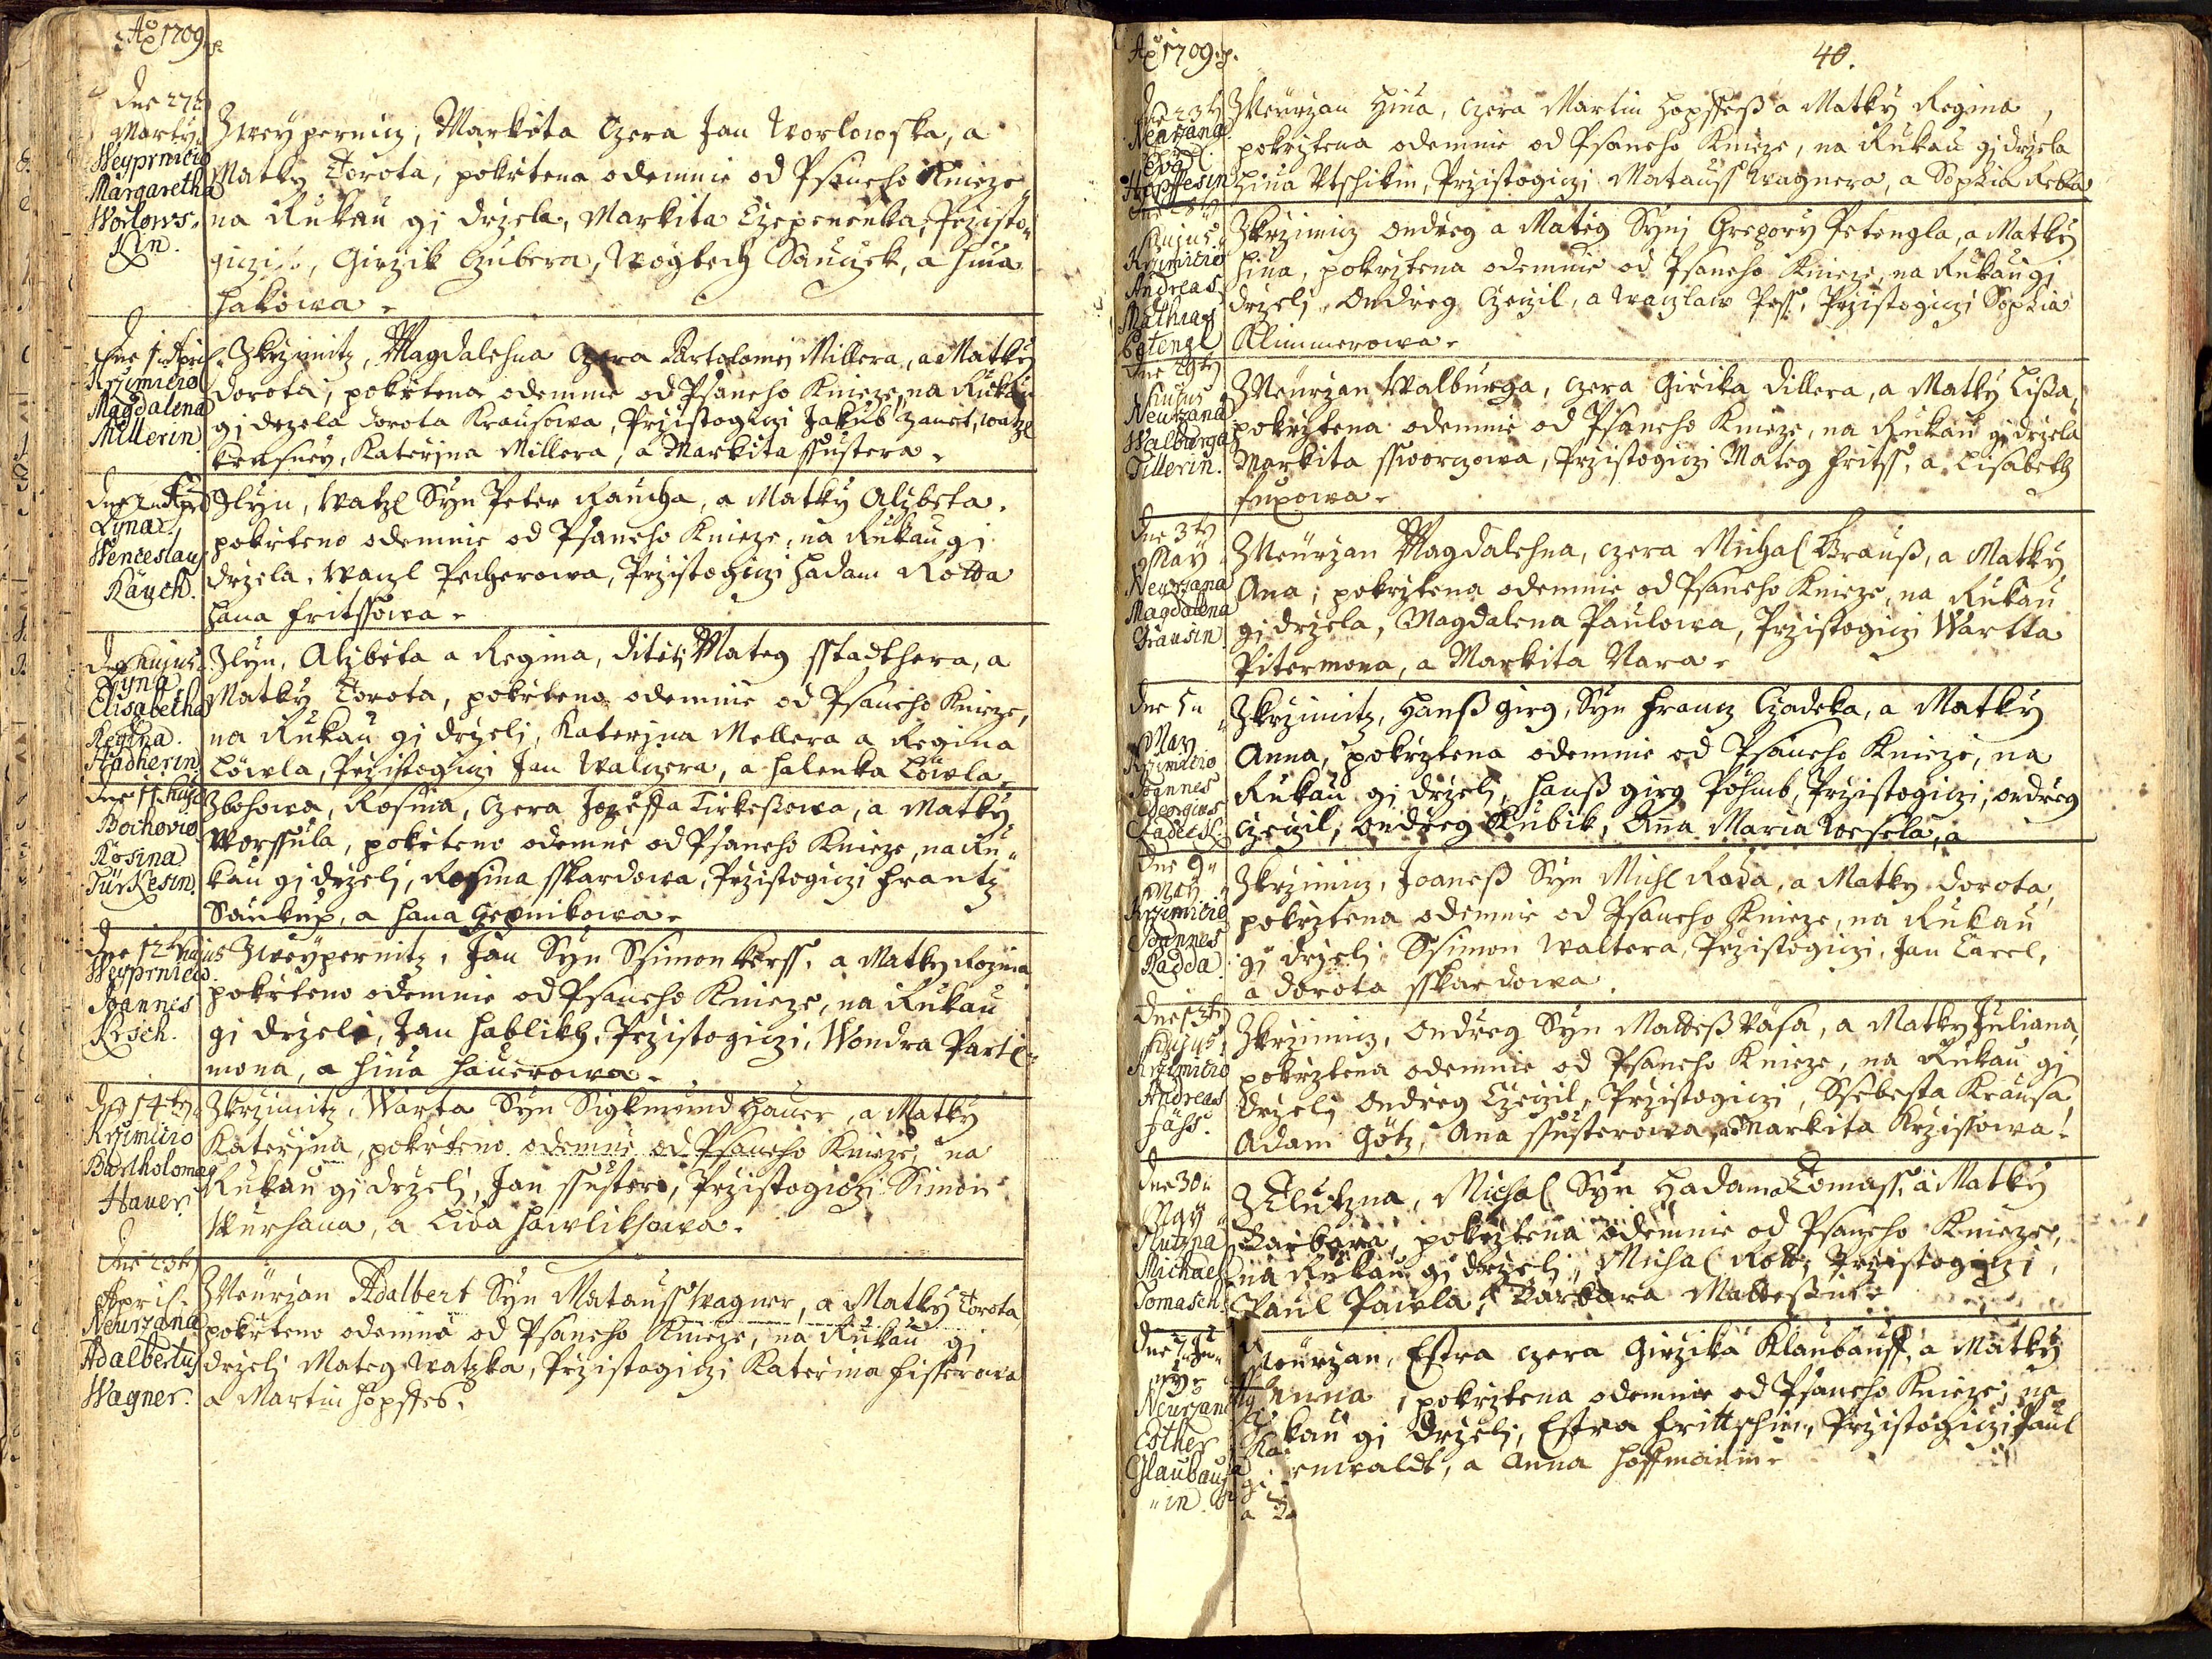 Ao 1709
Dne 27
Marty
Weyprnicio
Margaretha
Worlows-
kin.
Zweypernicz, Markita Czera Jan Worlowska, a
Matky Dorota, pokrtena odemnie od Psaneho Knieze
na Rukau gi drzela, Markita Czepenenka, Przisto-
giczi, Girzik Czubera, Woytech Sauczek, a hina
hakowa.
Dne 1 April
Krzimicio
Magdalena
Millerin
Zkrzimitz, Magdalehna Czera Bartolomej Millera, a Matky
Dorota, pokrtena odemnie od Psaneho Knieze, na Rukau
gi drzela Dorota Krausowa, Przistogiczi Jakub
Katerzna Millera, a Markita ssustera.
Lyna
Wenceslaus
Rauch.
Zlyn, Watzl Syn Peter Raucha, a Matky Alzbeta.
pokrteno odemnie od Psaneho Knieze, na Rukau gi
drzela, Waczl Pecherowa, Przistogiczi hadam Rotta
hana fritssowa.
Dne hujus
Lyna
Elisabetha
Regina.
Stadherin
Zlyn, Alzbeta a Regina, Diteti Mateg sstadthera, a
Matky Dorota, pokrteno odemnie od Psaneho Knieze,
na Rukau gi drzeli, Katerzna Mellera a Regina
Löwla, Przistogiczi Jan Walczera, a halenka Löwla.
Dne 11 huj
Rosina
Türkesin.
Zbohowa, Rosina, Czera Jozeffa Tirkessowa, a Matky
Worssula, pokrteno odemnie od Psaneho Knieze, na Ru-
kau gi drzeli, Rosina sskardowa, Przistogiczi frantz
Saukup, a hana
Dne 12 hujus
Weyprnicio
Joannes
Krsch.
Zweypernitz, Jan Syn Ssimon Kerss, a Matky Rozina
pokrteno odemnie od Psaneho Knieze, na Rukau
gi drzeli, Jan hablikh, Przistogiczi, Wondra Partl-
mona, a hina hauerowa.
Dne 14
Krzimicio
Bartholomaeg
Hauer.
Zkrzimitz, Warta Syn Sigkmund Hauer, a Matky
Katerzna, pokrteno odemnie od Psaneho Knieze, na
Rukau gi drzeli, Jan ssustera, Przistogiczi Simon
Wurhana, a Lida hawlikhowa.
Dne 23
April.
Neurzana
Adalbertus
Wagner.
ZNeurzan Adalbert Syn Matauss Wagner, a Matky Dorota,
pokrteno odemne od Psaneho Knieze, na Rukau gi
drzeli Mateg Watzka, Przistogiczi Katerina fisserowa
a Martin hopffes.
Ao 1709.
40.
Dne 23
Neurzana
Hopffesin
ZNeurzan Hina, Czera Martin Hopffess a Matky Regina,
pokrztena odemnie od Psaneho Knieze, na Rukau gi drzela
hina Utschikin, Przistogiczi Matauss Wagnera, a Sophia
hujus
Krzimicio
Andreas
Mathias
Petengl
Zkrzimicz Ondreg a Mateg Synj Gregory Petengla, a Matky
hina, pokrztena odemnie od Psaneho Knieze, na Rukau gi
drzeli, Ondreg Czeizil, a Waczlaw Pess, Przistogiczi Sophia
Klimmerowa.
Dne 29
hujus
Neurzana
Walburga
Tillerin.
ZNeurzan Walburga, Czera Girika Dillera, a Matky Lissa,
pokrztena odemnie od Psaneho Knieze, na Rukau gi drzela
Markita ssworczowa, Przistogiczi Mateg fritss, a Lisabeth
fuxowa.
Dne 3
May
Neurzana
Magdalena
Grausin.
ZNeurzan Magdalehna, Czera Michal Krauss, a Matky
Ana, pokrztena odemnie od Psaneho Knieze, na Rukau
gi drzela, Magdalena Paulowa, Przistogiczi Wartta
Pitermona, a Markita Vara.
Dne 5
May
Krzimicio
Joannes
Georgius
Zkrzimitz, Hanss Girg, Syn frantz Czadeka, a Matky
Anna, pokrztena odemnie od Psaneho Knieze, na
Rukau gi drzeli, hanss girg Pöhmb, Przistogiczi, Ondreg
Czeizil, Ondreg Kubik, Anna Maria Wesela, a
Dne 9
May
Krzimicio
Joannes
Radda.
Zkrzimicz, Joaness Syn Michl Rada, a Matky Dorota,
pokrztena odemnie od Psaneho Knieze, na Rukau
gi drzeli Ssimon Waltera, Przistogiczi, Jan Carel,
a Dorota sskardowa.
Dne 13
hujus
Krzimicio
Andreas
Zkrzimicz, Ondreg Syn Mattess Väsa, a Matky Juliana,
pokrztena odemnie od Psaneho Knieze, na Rukau gi
drzeli Ondreg Czeizil, Przistogiczi, Ssebesta Krausa,
Adam Götz, Ana ssusterowa, a Markita Krzissowa.
Dne 30
May
Michael
Tomasch.
Michal Syn Hadama Tomass, a Matky
Barbara, pokrztena odemnie od Psaneho Knieze,
na Rukau gi drzeli, Michal Przistogiczi,
Paul Pawla, Barbara
Neurzan
Esther
Glaubauf
in.
Neurzan, Estra Czera Girzika Klaubauff, a Matky
Anna, pokrztena odemnie od Psaneho Knieze, na
kau gi drzeli, Estra frittschin, Przistogiczi Paul
a Anna hoffmanin.